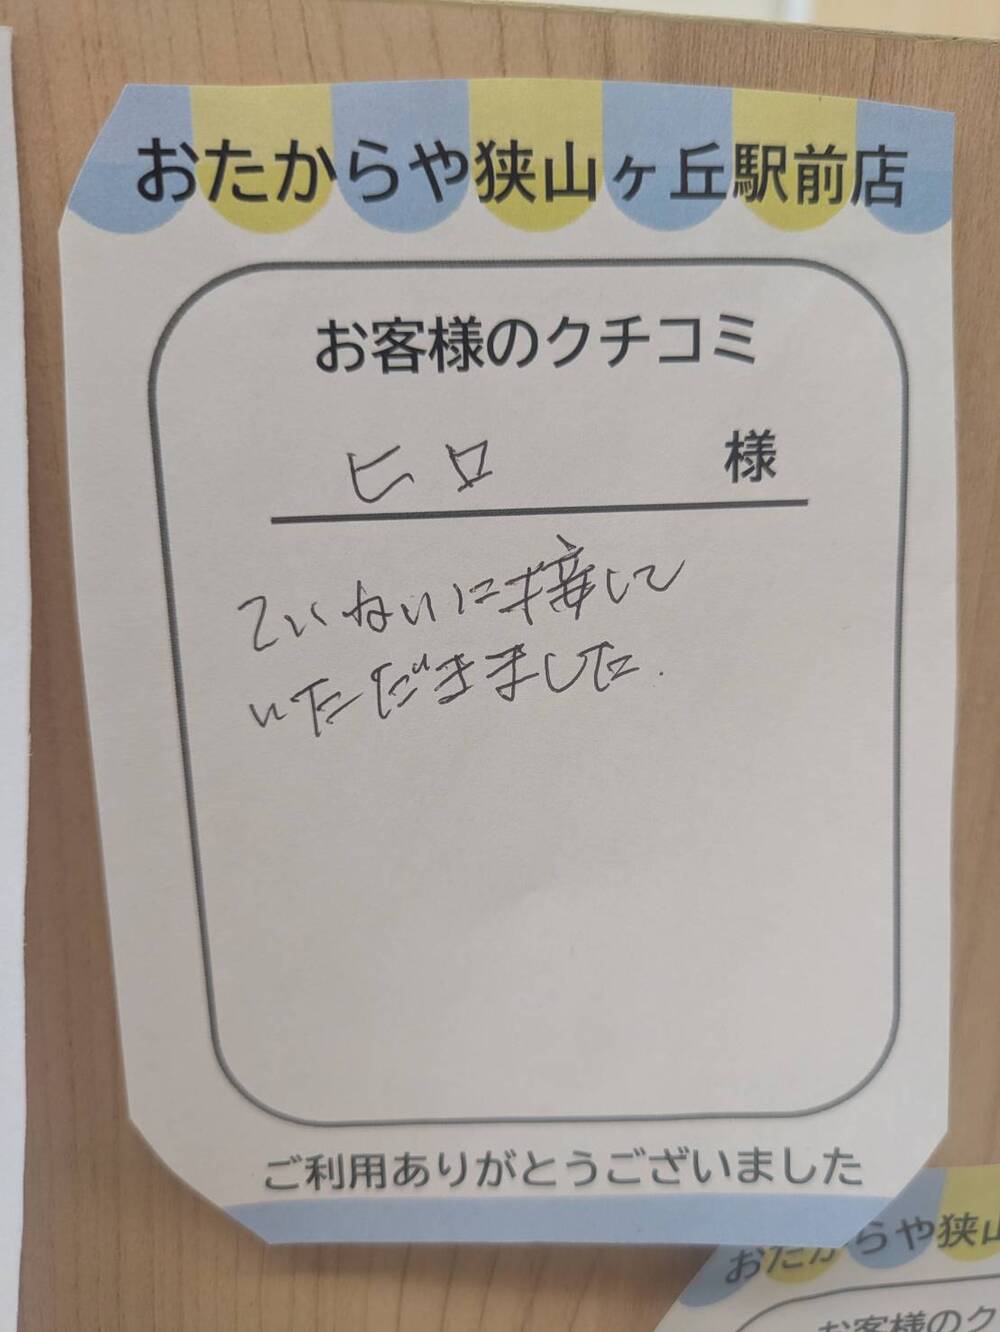 おたからや狭山ヶ丘駅前店
お客様のクチコミ
ヒロ 様
ていねいに接して
いただきました.
ご利用ありがとうございました
おたからや狭山
お客様のク